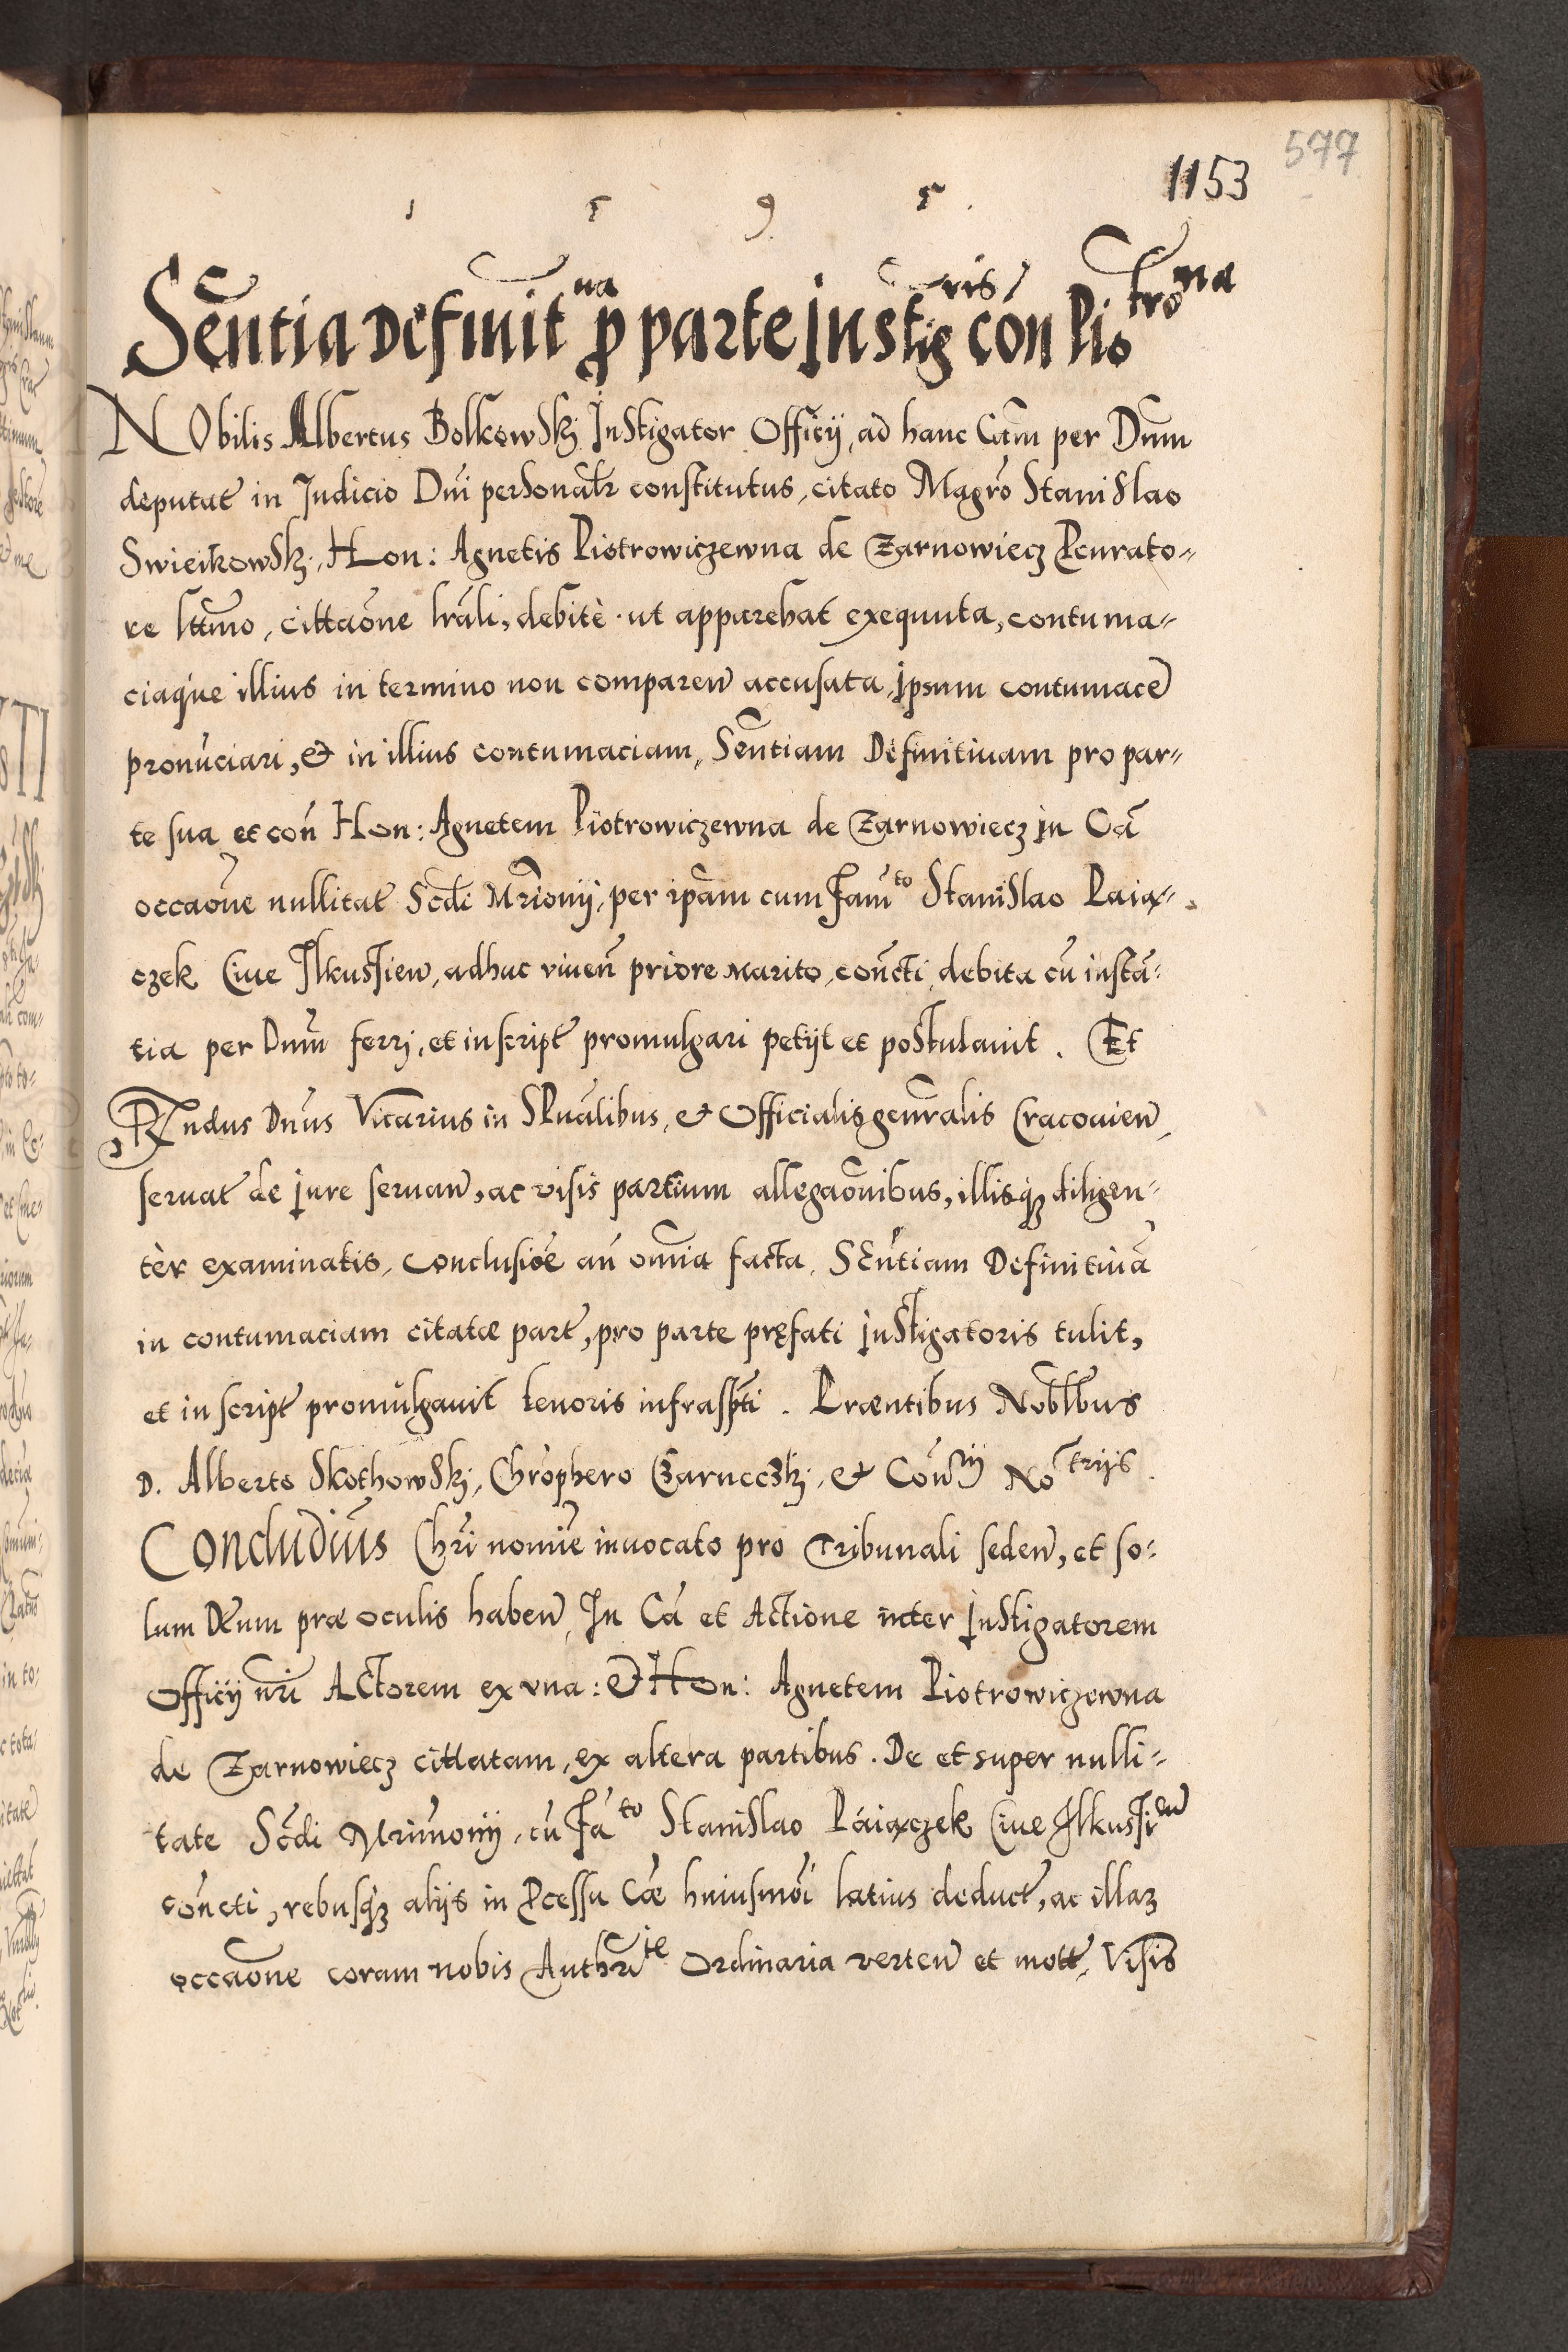 577
1153
1 5 9 5.
Sentia Definitna pro parte Instigris con Piotrona
NObilis Albertus Bolkowskj Instigator Officij, ad hanc Cām per Dnm
deputat̃ in Judicio Dni personalr constitutus, citato Magrō Stanislao
Swieikowskj, Hon: Agnetis Piotrowiczewna de Zarnowiecz Pcurato=
re lttmo, cittaōne lrāli, debitè ut apparebat exequuta, contuma=
ciaque illius in termino non comparen̄ accusata, ipsum contumacē
pronūciari, & in illius contumaciam, Sentiam Definitiuam pro par=
te sua et con̄ Hon: Agnetem Piotrowiczewna de Zarnowiecz in Cā
occaōne nullitat̃ Scdi Mrīonij, per ipām cum Famto Stanislao Paia=
czek Ciue Ilkussien̄, adhuc viuen̄ priore marito, con̄cti, debita cū instā=
tia per Dnm̄ ferrj, et in script̃ promulgari petijt et postulauit. Et
Rndus Dn̄us Vicarius in Spuālibus, & Officialis gen̄ralis Cracouien̄,
seruat̃ de jure seruan̄, ac visis partium allegaōnibus, illisq̃ꝫ diligen=
tèr examinatis, conclusiōe an̄ om̄ia facta, Sēntiam Definitiuā
in contumaciam citatæ part̃, pro parte pręfati Instigatoris tulit,
et in script̃ promulgauit tenoris infrasp̄ti. Præntibus Nobllbus
D. Alberto Skothowskj, Chrōphero Czarneczkj, & Con̄rij Notrijs.
Concludim̄us Chrī nomīe inuocato pro Tribunali seden̄, et so=
lum Deum præ oculis haben̄, In Cā et Actione inter Instigatorem
Officij nrī Actorem ex vna: & Hon: Agnetem Piotrowiczewna
de Zarnowiecz cittatam, ex altera partibus. De et super nulli=
tate Scd̄i Mrim̄onij, cū Fāto Stanislao Páiączek Ciue Ilkussien̄
con̄cti, rebusq̃ꝫ alijs in Pcessu Cæ huiusmōi latius deduct̃, ac illaꝝ
occaōne coram nobis Authr̄ite Ordinaria verten̄ et mott̃, Visis